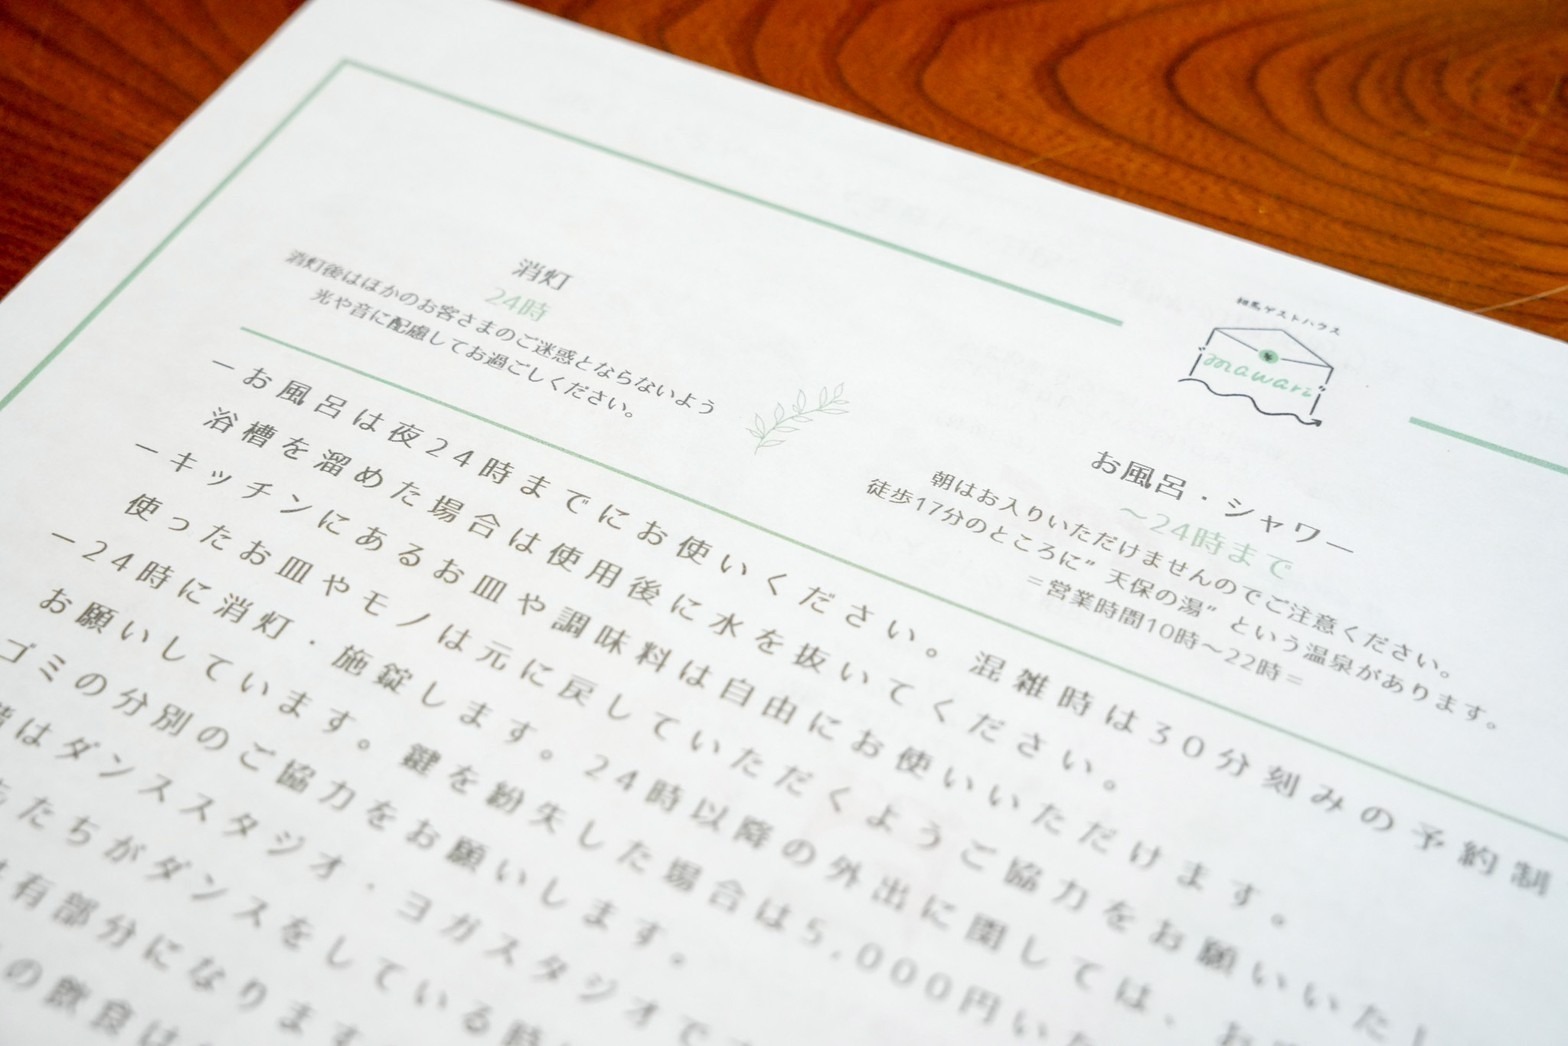 ゲストハウス
mawari
消灯
24時
消灯後はほかのお客さまのご迷惑とならないよう
光や音に配慮してお過ごしください。
お風呂・シャワー
〜24時まで
朝はお入りいただけませんのでご注意ください。
徒歩17分のところに”天保の湯”という温泉があります。
=営業時間10時〜22時=
ーお風呂は夜24時までにお使いください。混雑時は30分刻みの予約制
浴槽を溜めた場合は使用後に水を抜いてください。
ーキッチンにあるお皿や調味料は自由にお使いいただけます。
使ったお皿やモノは元に戻していただくようご協力をお願いいたし
ー24時に消灯・施錠します。24時以降の外出に関しては、お
お願いしています。鍵を紛失した場合は5,000円いた
ゴミの分別のご協力をお願いします。
はダンススタジオ・ヨガスタジオで
たちがダンスをしている時
有部分になります
の飲食は